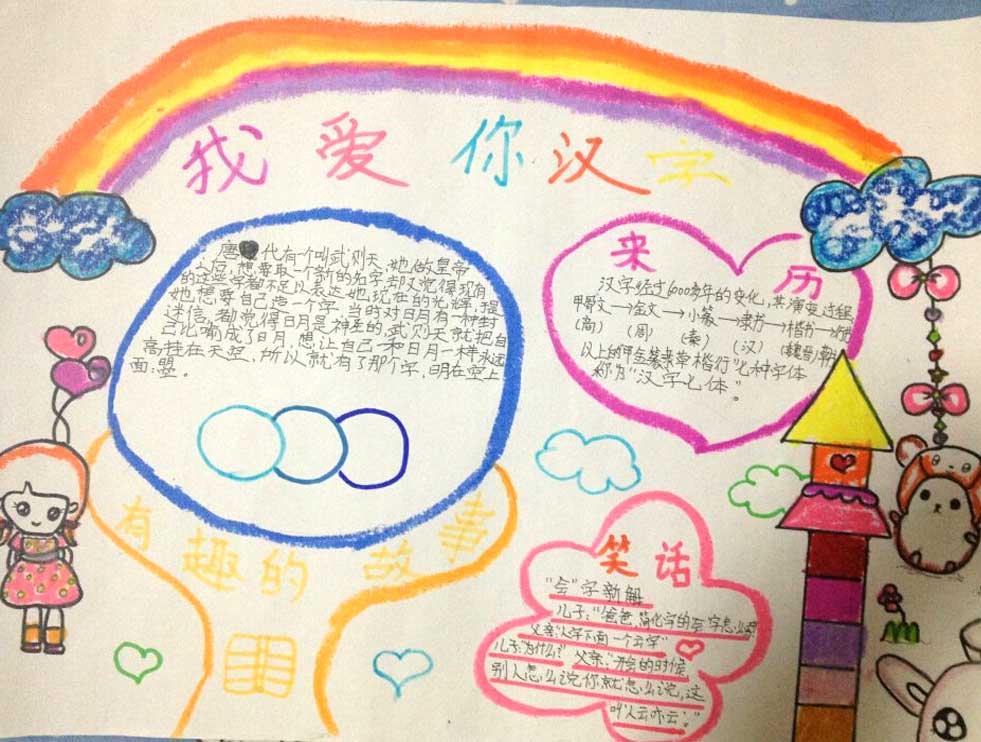 我爱你汉字
唐 代有个叫武则天,她做皇帝
之后,想要取一个新的名字,却又觉得现有
的这些字都不足以表达她现在的光辉,提
她想要自己造一个字,当时对日月有一种封
迷信,都觉得日月是神圣的,武则天就把自
己比喻成了日月,想让自己和日月一样永远
高挂在天空,所以就有了那个字,明在空上
面:曌。
有趣的故事
来历
汉字经过6000多年的变化,其演变过程
甲骨文→金文→小篆→隶书→楷书→行书
(商) (周) (秦) (汉) (魏晋)
以上的甲金篆隶草楷行"七种字体
称为"汉字七体"。
笑话
"会"字新解
儿子:"爸爸,简化字的会字怎么写
父亲:人字下面一个云字"
儿子:为什么? 父亲:"开会的时候
别人怎么说你就怎么说,这
叫'人云亦云'。"